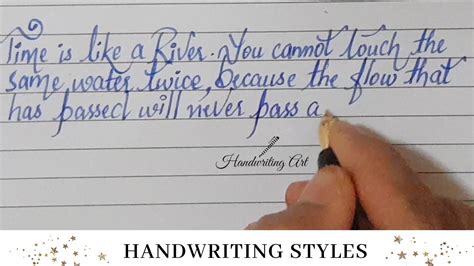 Time is like a River. You cannot touch the
same water twice, because the flow that
has passed will never pass a
Handwriting Art
HANDWRITING STYLES